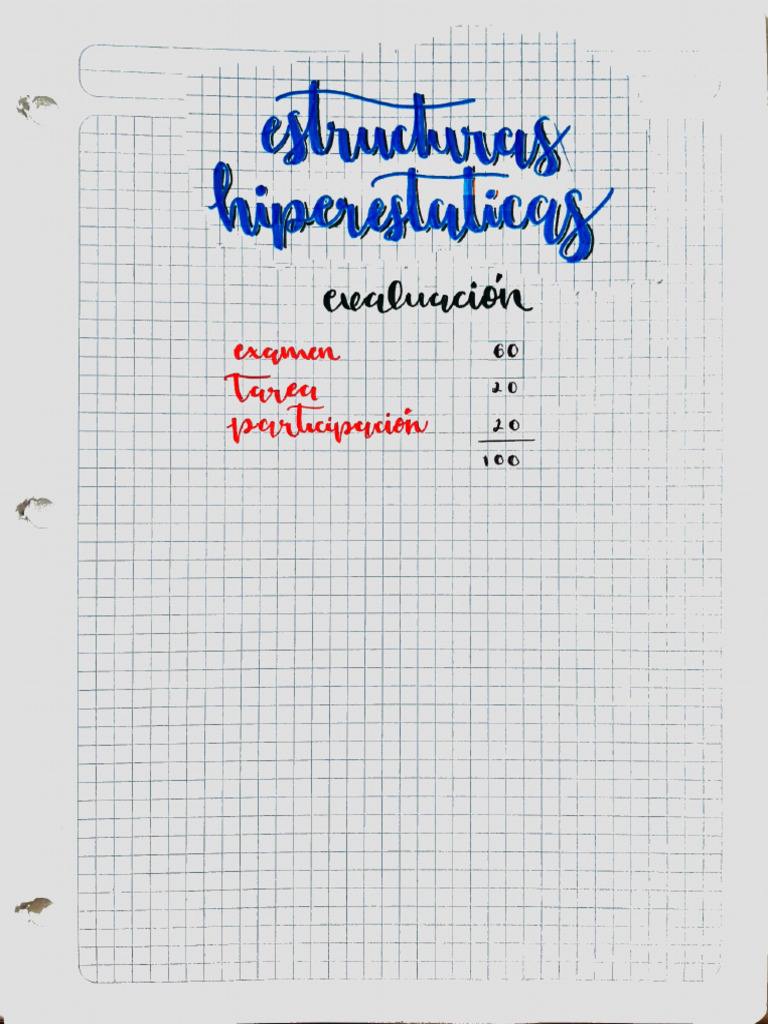 estructuras
hiperestaticas
evaluación
examen 60
tarea 20
participación 20
100